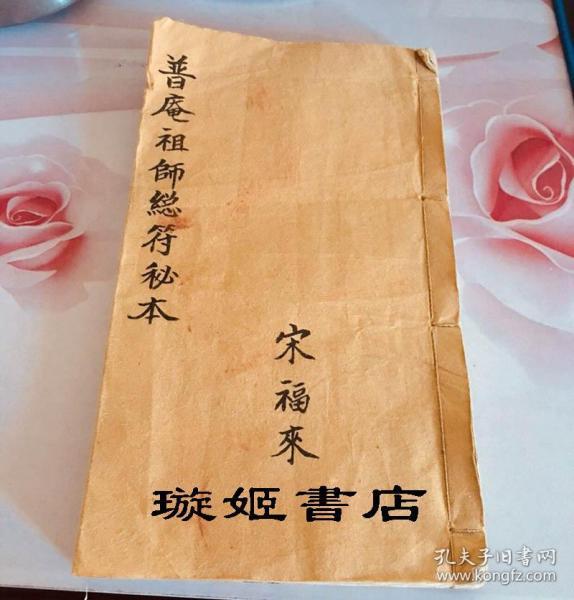 普庵祖師総符秘本
宋福來
璇姬書店
孔夫子旧书网
www.kongfz.com